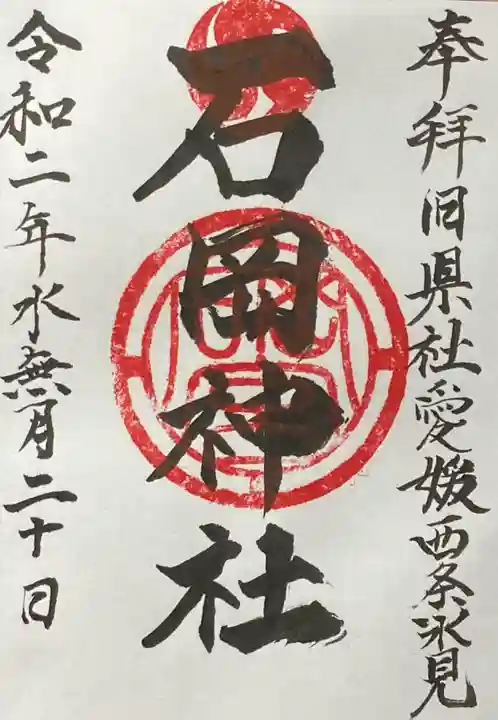 奉拝旧県社愛媛西条氷見
石岡神社
令和二年水無月二十日